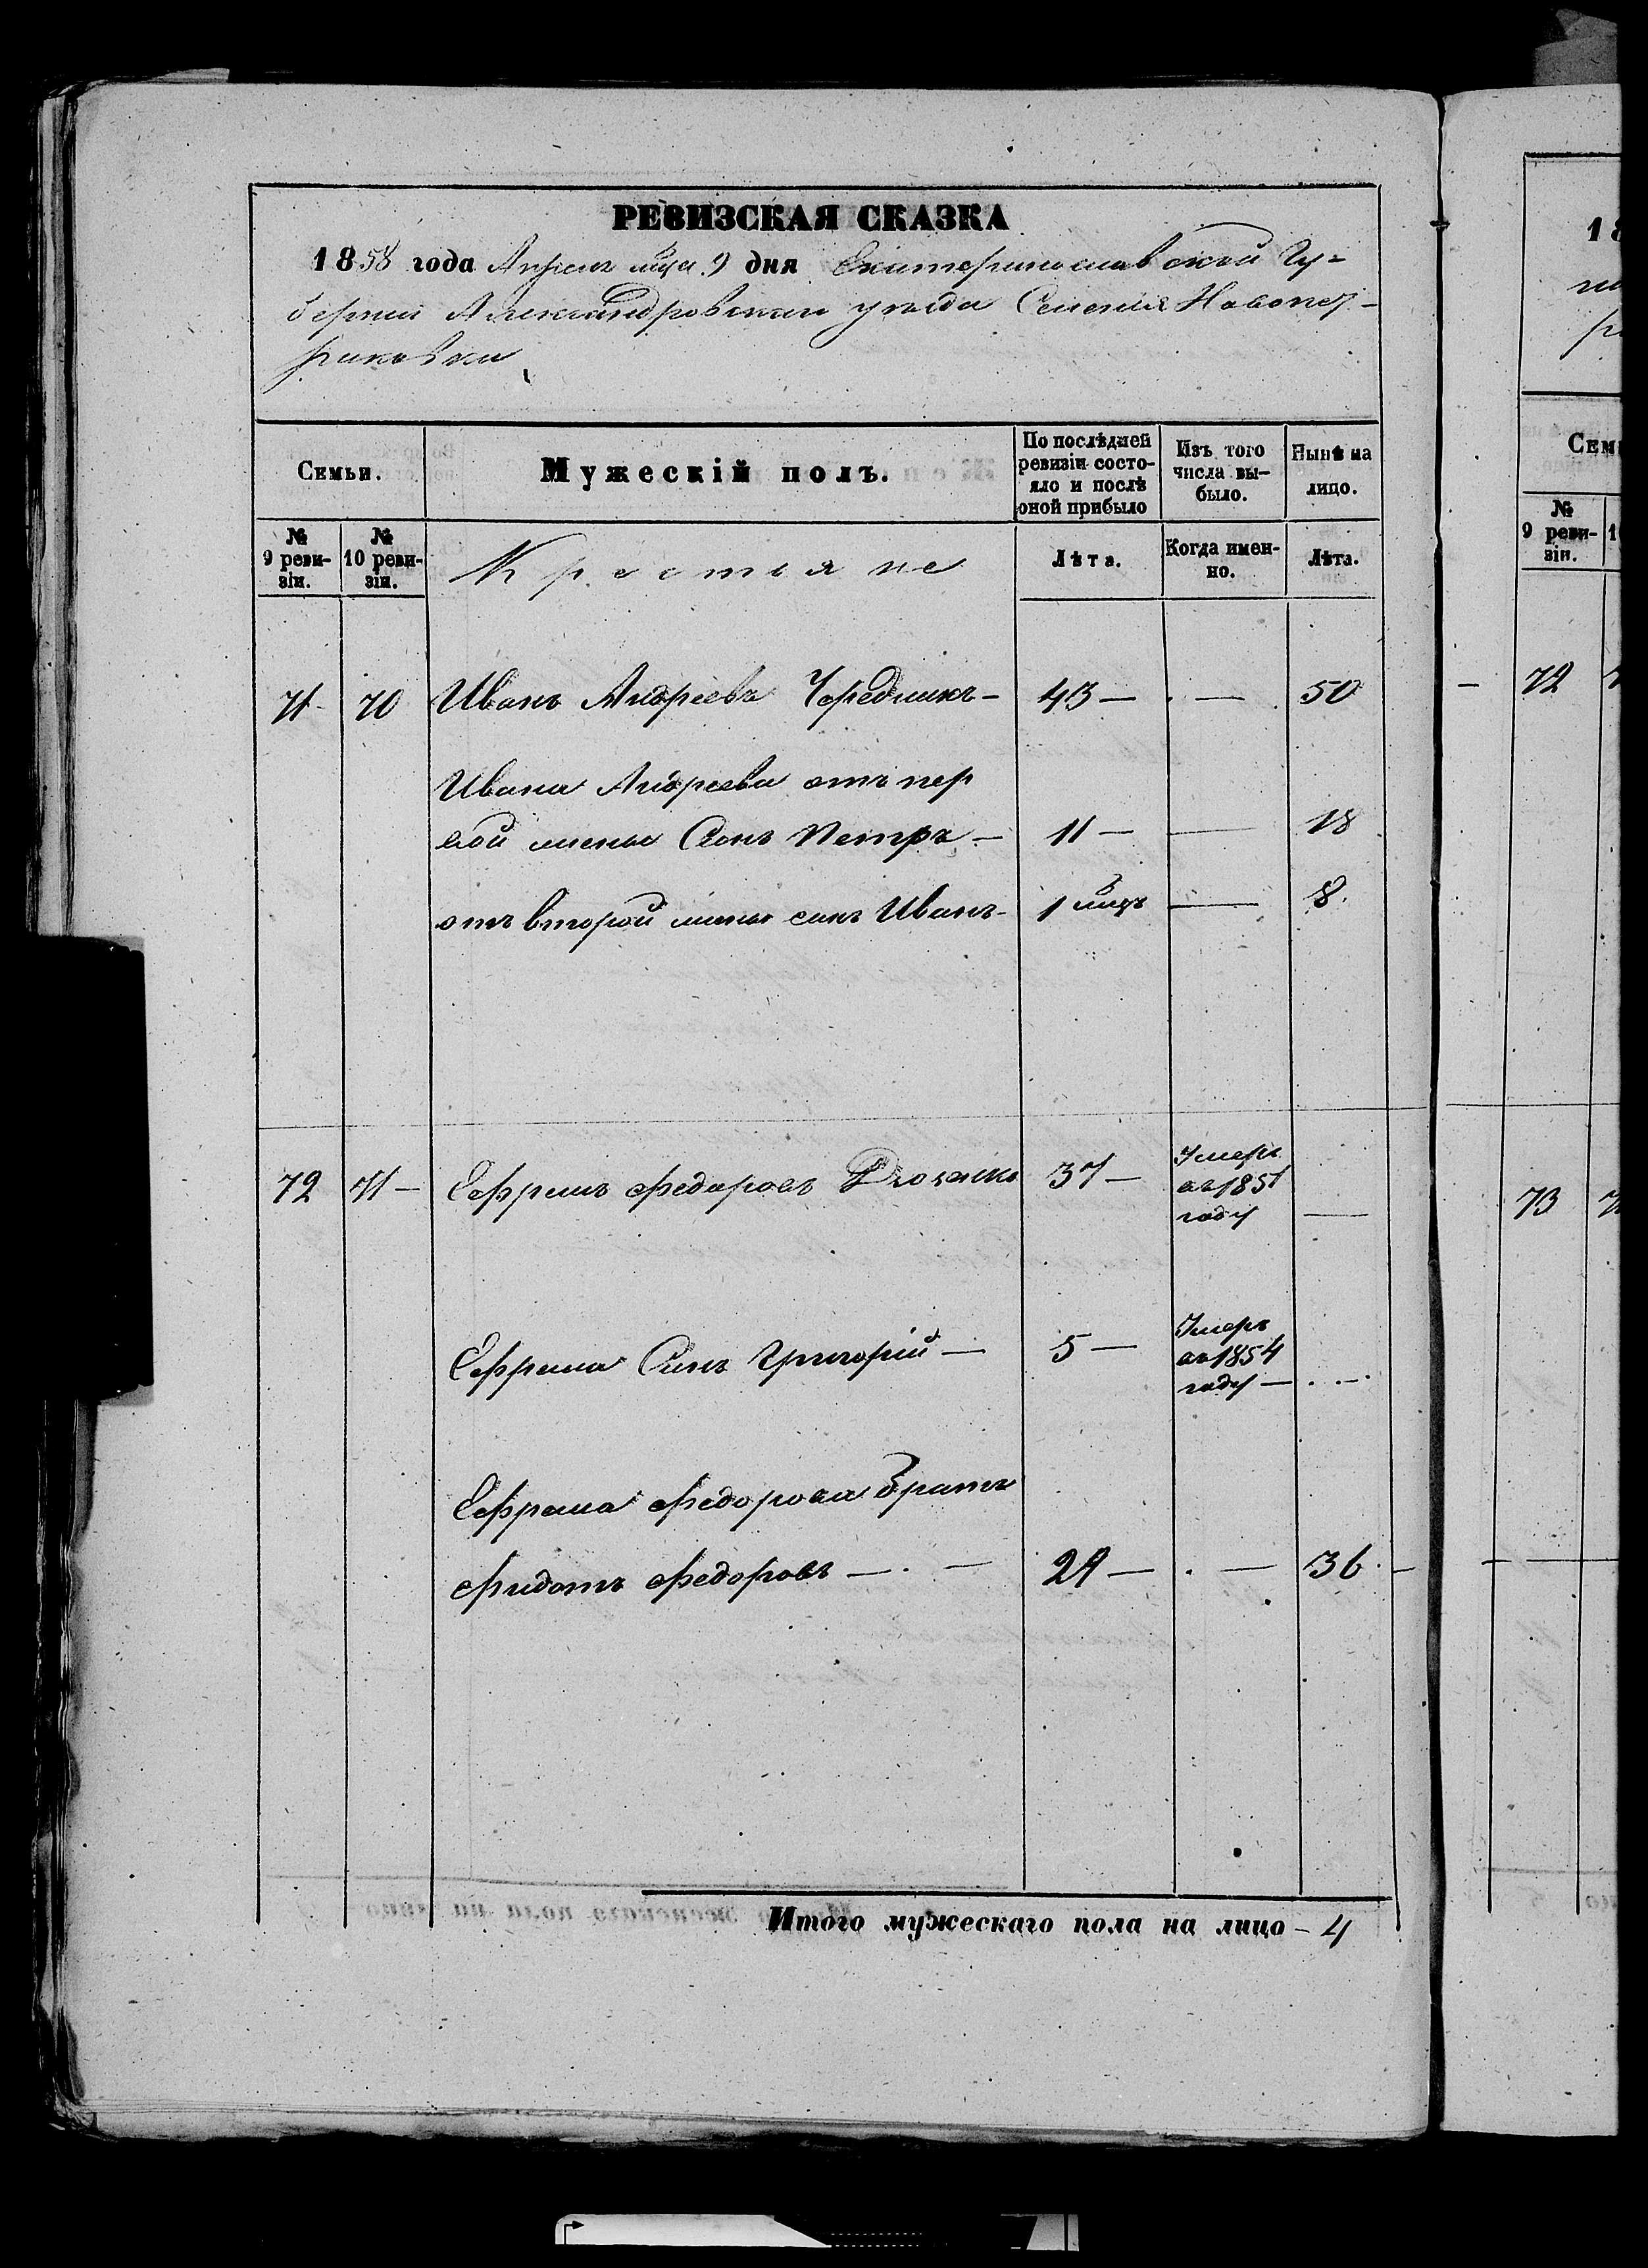 РЕВИЗСКАЯ СКАЗКА
1858 года Апреля мца 9 дня Екатеринославской Гу-
берніи Александровскаго уезда Селенія
Семьи.
Мужескій полъ.
По послѣдней ревизіи состо-
яло и послѣ
оной прибыло
Изъ того
числа вы-
было.
Нынѣ на
лицо.
№
9 реви-
зіи.
№
10 реви-
зіи.
Крестьяне
Лѣта.
Когда имен-
но.
Лѣта.
71 70 Иванъ Андреевъ Чередникъ — 43 — — 50
Ивана Андреева отъ пер
вой жены Сынъ Петръ — 11 — — 18
отъ второй жены сынъ Иванъ — 1 мцъ — 8
72 71 — Ефремъ Федоровъ 37 — Умеръ
въ 1851
году —
Ефрема Сынъ Григорій — 5 — Умеръ
въ 1854
году —
Ефрема Федорова братъ
Федотъ Федоровъ — 29 — — 36
Итого мужескаго пола на лицо — 4
18
Семь
№
9 реви-
зіи.
72
73